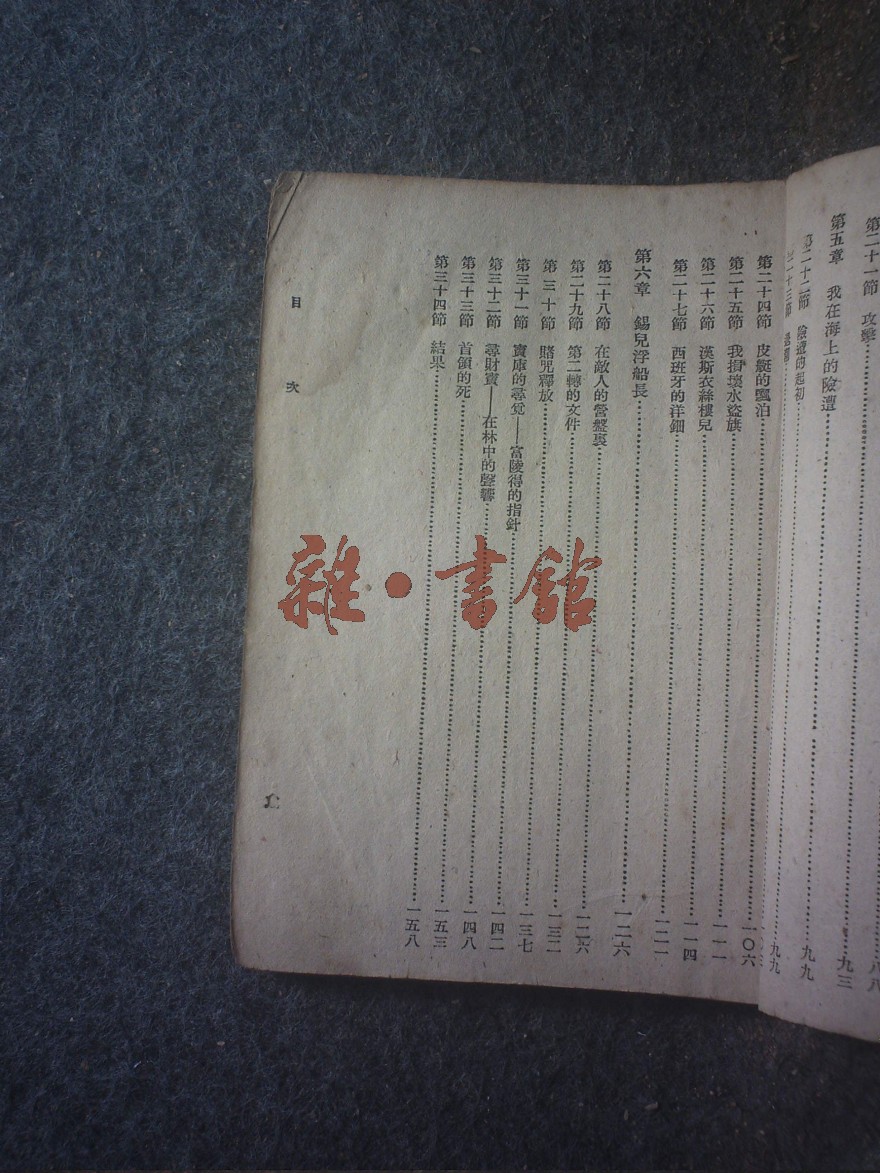 第二十一節　攻擊……八八
第五章　我在海上的險遭……九三
第二十二節　險遭的起初……九九
二十三節……九九
第二十四節　皮艇的飄泊……一〇六
第二十五節　我損壞水盜旗……一一一
第二十六節　漢斯衣絲樓兒……一一四
第二十七節　西班牙的洋鈿……一二一
第六章　錫兒浮船長……一二六
第二十八節　在敵人的營盤裏……一二六
第二十九節　第二轉的文件……一三二
第三十節　賭咒釋放……一三七
第三十一節　寶庫的尋覓——富陵得的指針……一四二
第三十二節　尋財寶——在林中的聲響……一四八
第三十三節　首領的死……一五三
第三十四節　結果……一五八
目次
雜·書館